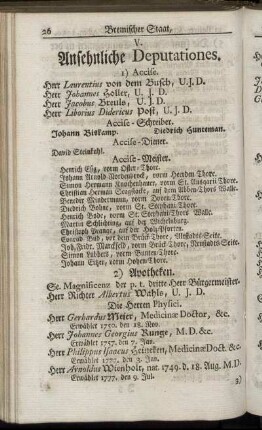 26 Bremischer Staat,
V.
Ansehnliche Deputationes.
1) Accise.
Herr Laurentius von dem Busch, U.J.D.
Herr Johannes Holler, U. J. D.
Herr Jacobus Breuls, U. J. D.
Herr Liborius Didericus Post, U. J. D.
Accise-Schreiber.
Johann Biekamp. Diedrich Hunteman.
Accise-Diener.
David Steinkohl.
Accise-Meister.
Henrich vom Oster-Thore.
Johann Arnold vom Herden-Thore.
Simon Hermann vom St. Ansgarii Thore.
Christian Herman auf dem Alten Thors Walle.
Benedict vom Doven Thore.
Diedrich vom St. Stephani Thore.
Henrich Bode, vom St. Stephani Thors Walle.
Martin Schlichting, auf der
Christoph auf der Holz-Pforten.
Conrad vor dem Brück Thore, Altstadts-Seite.
Joh. Fridr. vor dem Brück Thore, Neustadts-Seite.
Simon Lübbers, vom Bunten Thore.
Johann vom Hohen Thore.
2) Apotheken.
Se. Magnificenz der p. t. dritte Herr Bürgermeister.
Herr Richter Albertus Wehls, U. J. D.
Die Herren Physici.
Herr Gerhardus Meier, Medicinæ Doctor, &c.
Erwählet 1750. den 18. Nov.
Herr Johannes Georgius Runge, M.D. &c.
Erwählet 1757. den 7. Jan.
Herr Philippus Isaacus Heineken, Medicinæ Doct. &c.
Erwählet 1777. den 3. Jan.
Herr Arnoldus Wienholt, nat. 1749. d. 18. Aug. M.D.
Erwählet 1777. den 9. Jul.
3)